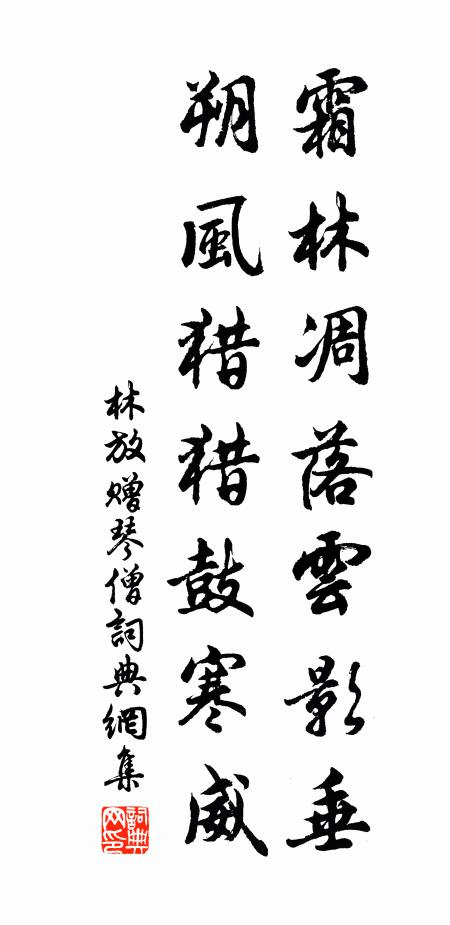 霜林凋落雲影垂
朔風猎猎鼓寒威
林放赠琴僧詞典網集
詞典
网印